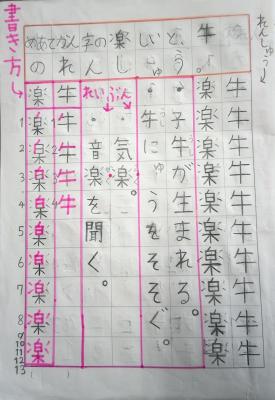 れんしゅう↓
めあてがん字の楽しいと、牛
のれんしゅう。
牛牛牛牛牛牛牛牛牛牛
楽楽楽楽楽楽楽楽楽楽
・子牛が生まれる。
・牛にゅうをそそぐ。
れいぶん
・気楽。
・音楽を聞く。
牛牛牛牛
楽楽楽楽楽楽楽楽楽楽
書き方→
1
2
3
4
5
6
7
8
9
10
11
12
13